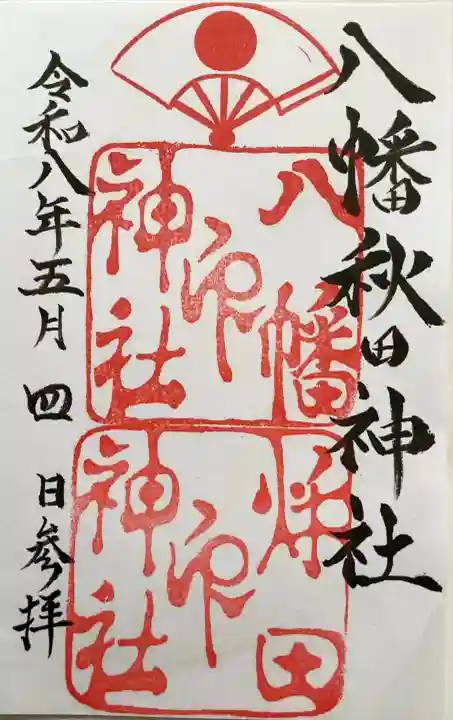 八幡秋田神社
八幡
神社
印
秌田
神社
印
令和八年五月四日参拝